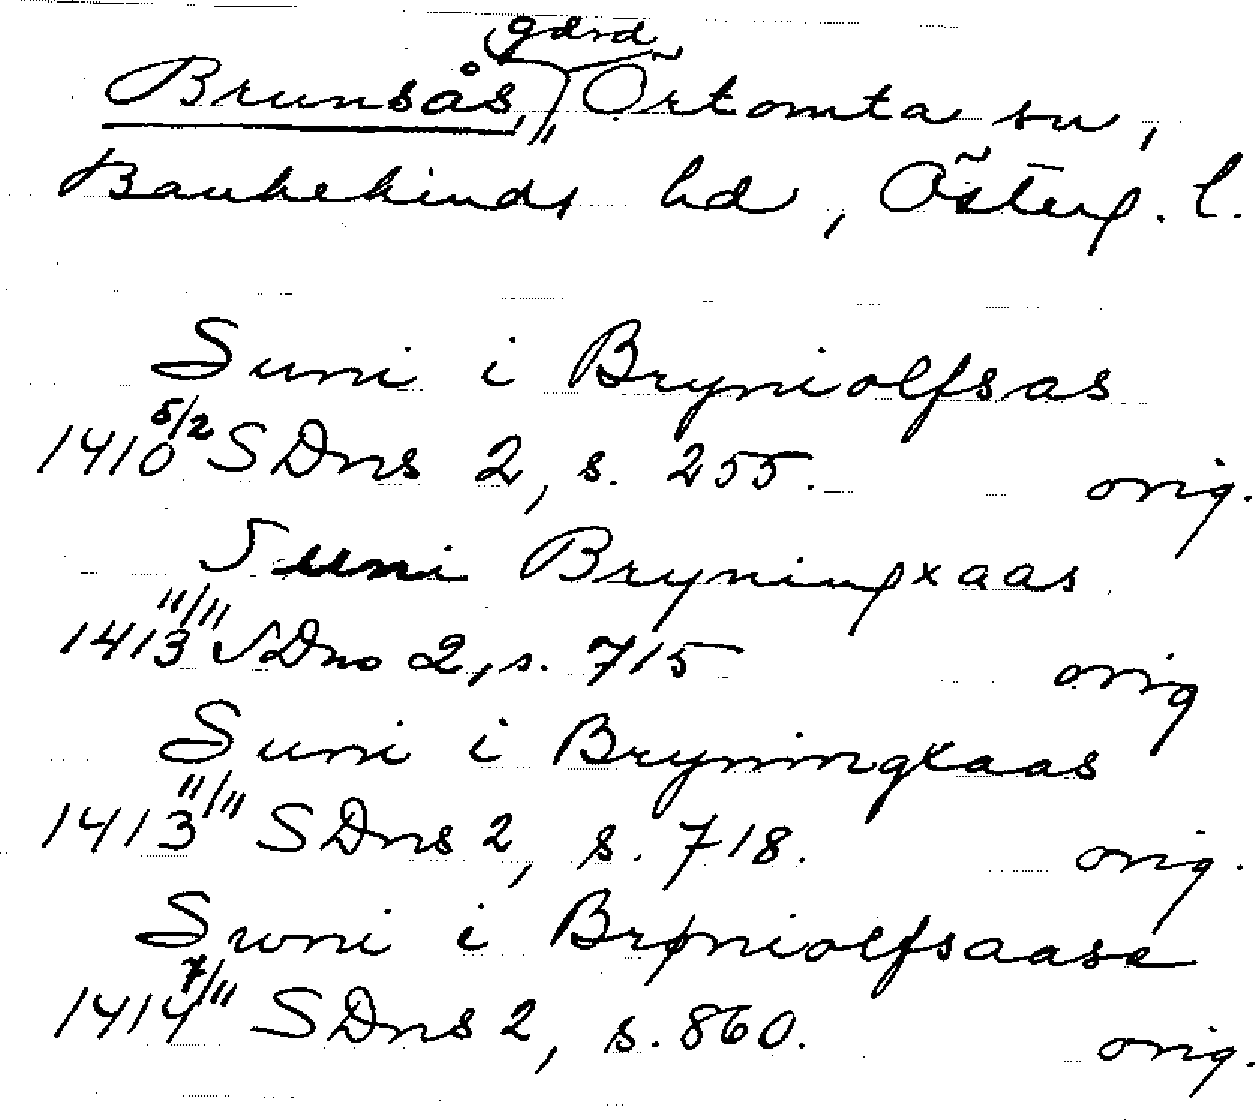 gård
Brunsås, Örtomta sn,
Bankekinds hd, Österg. l.
Suni i Bryniolfsas
1410 5/2 SDns 2, s. 255. orig.
Suni Bryningxaas
1413 11/11 SDns 2, s. 715 orig
Suni i Bryningxaas
1413 11/11 SDns 2, s. 718. orig.
Swni i Bryniolfsaase
1414 7/11 SDns 2, s. 860. orig.